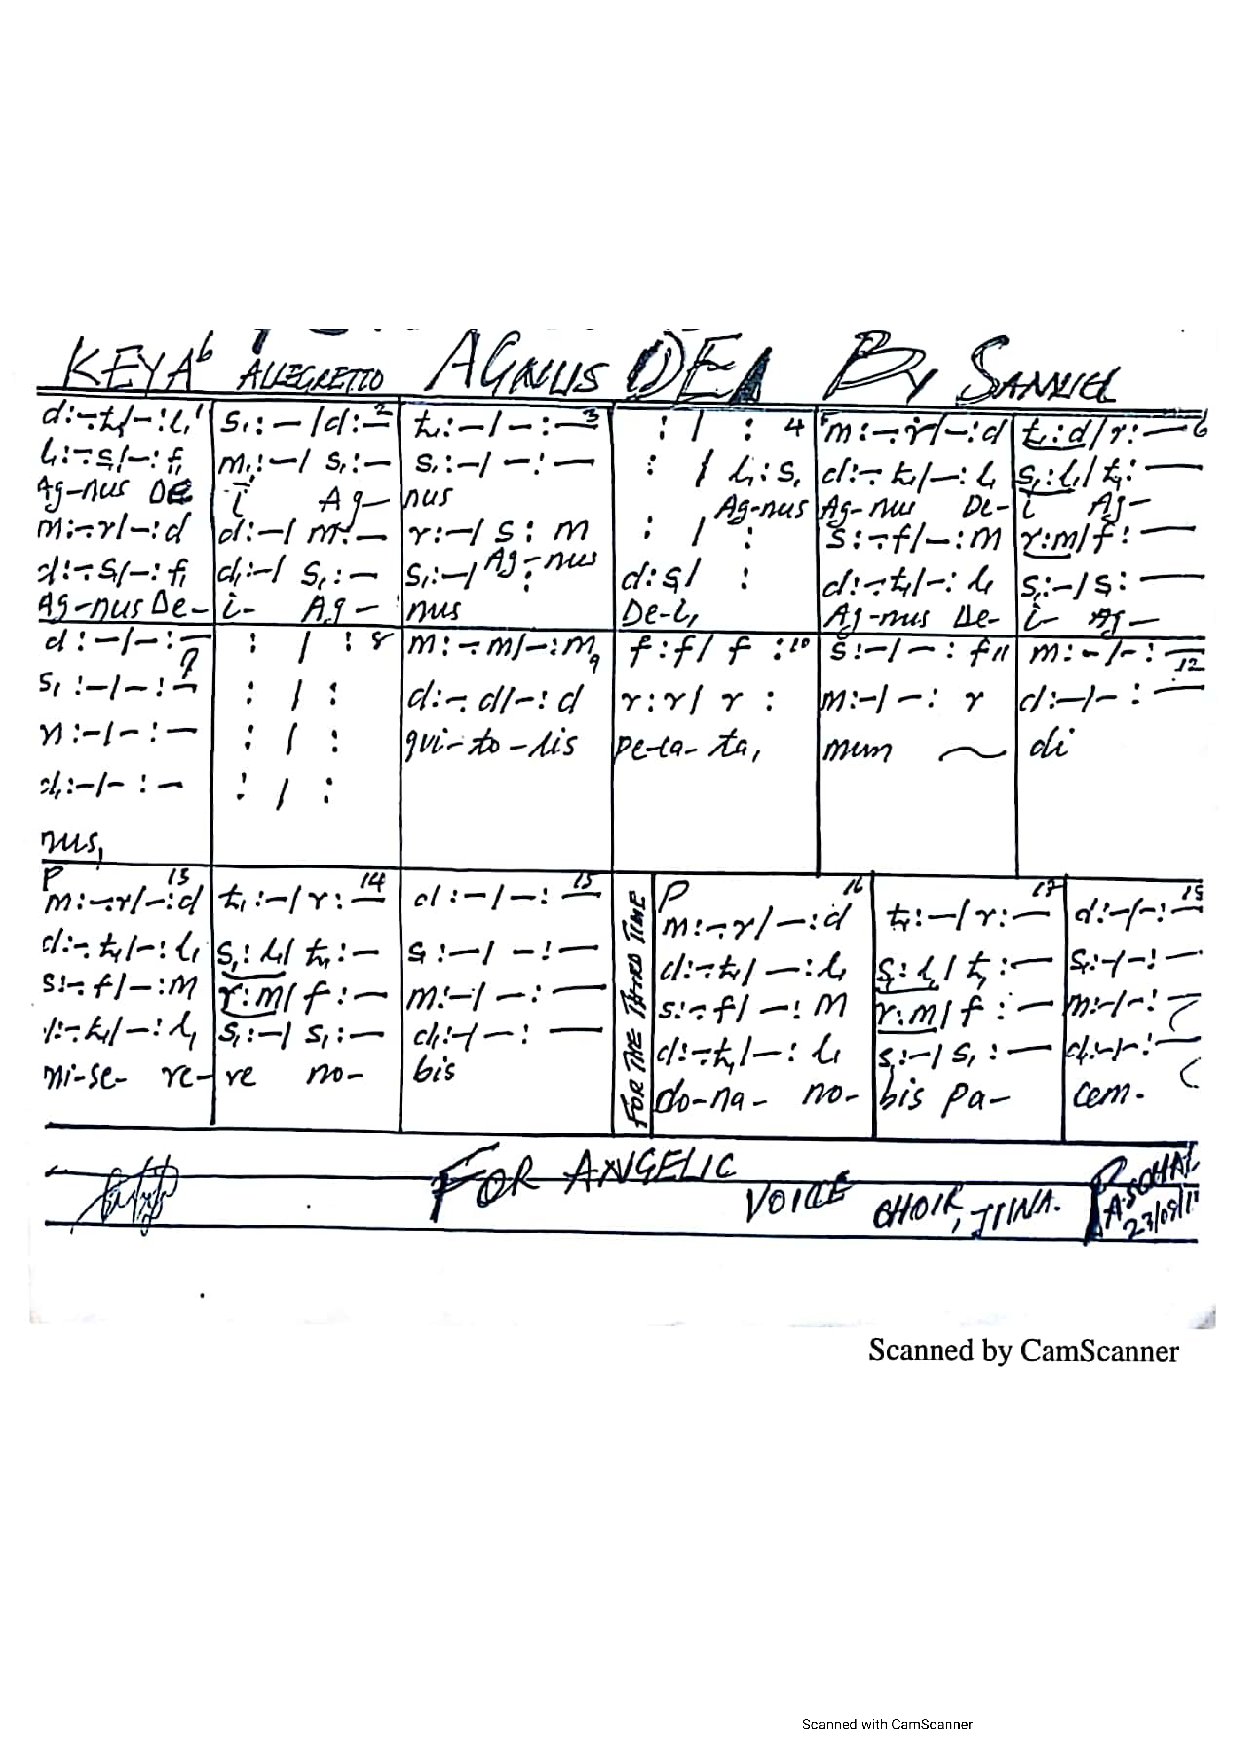 KEY A♭ ALLEGRETTO AGNUS DEI By SAMUEL
d:-.t₁/-:l₁ 1 | s₁:—/d:— 2 | t₁:—/—:— 3 | : / : 4 | m:-.r/—:d 5 | t₁:d/r:— 6
l₁:-.s₁/—:f₁ | m₁:—/s₁:— | s₁:—/—:— | : / l₁:s₁ | d:-.t₁/—:l₁ | s₁:l₁/t₁:—
Ag-nus DE | i Ag— | nus | Ag-nus | Ag-nus De- | i Ag-
m:-.r/—:d | d:—/m:— | r:—/s:m | : / : | s:-.f/—:m | r:m/f:—
d:-.s₁/—:f₁ | d₁:—/s₁:— | s₁:—/ Ag-nus : | d:s₁/ : | d:-.t₁/—:l₁ | s₁:—/s:—
Ag-nus De- | i- Ag- | nus | De-i, | Ag-nus De- | i- Ag—
d:—/—:— 7 | : / : 8 | m:-.m/—:m 9 | f:f/f: 10 | s:—/—:f 11 | m:—/—:— 12
s₁:—/—:— | : / : | d:-.d/—:d | r:r/r: | m:—/—:r | d:—/—:—
m:—/—:— | : / : | qui-to-lis | pe-ca-ta, | mun | di
d₁:—/—:— | : / :
nus,
P
m:-.r/—:d 13 | t₁:—/r:— 14 | d:—/—:— 15 | FOR THE THIRD TIME | P m:-.r/—:d 16 | t₁:—/r:— 17 | d:—/—:— 18
d:-.t₁/—:l₁ | s₁:l₁/t₁:— | s₁:—/—:— | d:-.t₁/—:l₁ | s₁:l₁/t₁:— | s₁:—/—:—
s:-.f/—:m | r:m/f:— | m:—/—:— | s:-.f/—:m | r:m/f:— | m:—/—:—
d:-.t₁/—:l₁ | s₁:—/s₁:— | d₁:—/—:— | d:-.t₁/—:l₁ | s₁:—/s₁:— | d₁:—/—:—
mi-se- re- | re no- | bis | do-na- no- | bis pa- | cem.
FOR ANGELIC VOICE CHOIR, JJINA.
Scanned by CamScanner
Scanned with CamScanner